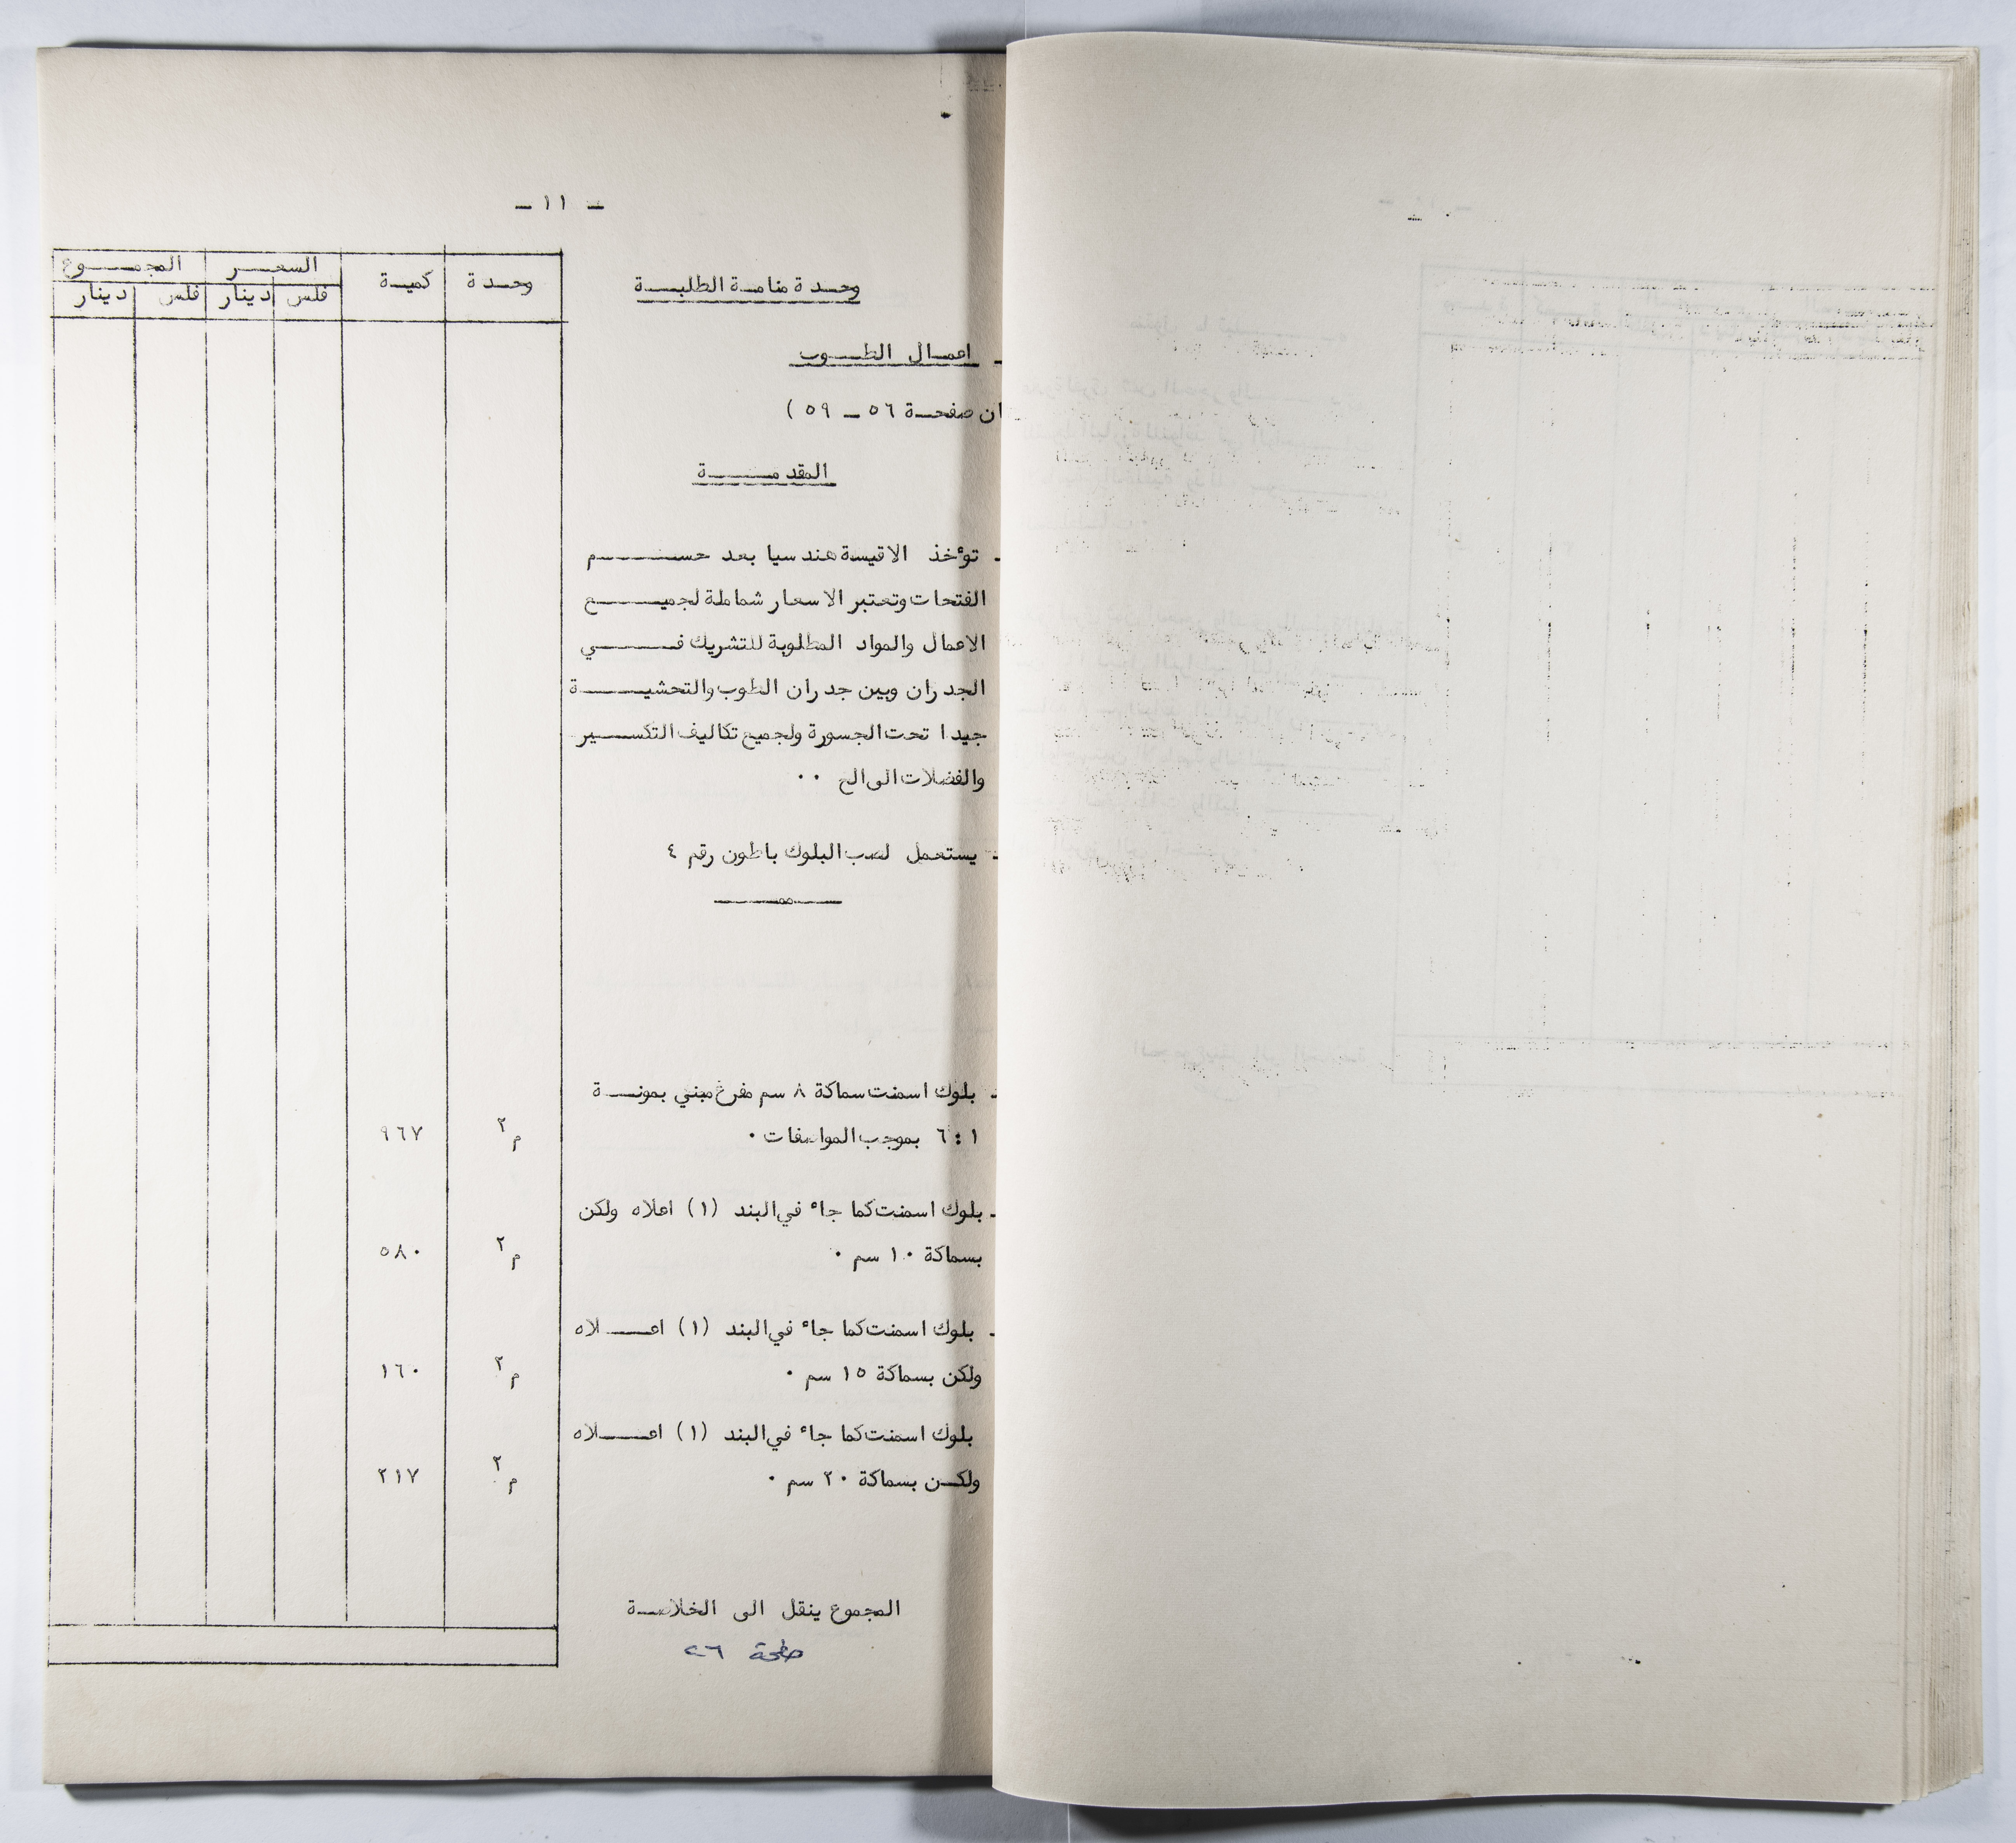 - ١١ -
وحدة كمية السعر المجموع
فلس دينار فلس دينار
وحدة منامة الطلبة
- اعمال الطوب
ان صفحة ٥٦ - ٥٩ )
المقدمة
- تؤخذ الاقيسة هندسيا بعد حسم
الفتحات وتعتبر الاسعار شاملة لجميع
الاعمال والمواد المطلوبة للتشريك في
الجدران وبين جدران الطوب والتحشية
جيدا تحت الجسورة ولجميع تكاليف التكسير
والفضلات الى الخ ٠٠
- يستعمل لصب البلوك باطون رقم ٤
- بلوك اسمنت سماكة ٨ سم مفرغ مبني بمونة
١ : ٦ بموجب المواصفات ٠ م٢ ٩٦٧
- بلوك اسمنت كما جاء في البند (١) اعلاه ولكن
بسماكة ١٠ سم ٠ م٢ ٥٨٠
- بلوك اسمنت كما جاء في البند (١) اعلاه
ولكن بسماكة ١٥ سم ٠ م٢ ١٦٠
بلوك اسمنت كما جاء في البند (١) اعلاه
ولكن بسماكة ٢٠ سم ٠ م٢ ٢١٧
المجموع ينقل الى الخلاصة
صفحة ٢٦